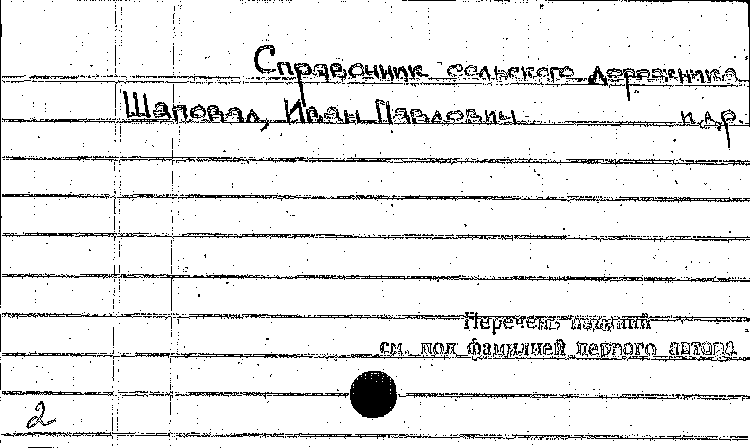 Справочник сельского дорожника
Шаповал, Иван Павлович и др.
Перечень изданий
см. под фамилией первого автора
2